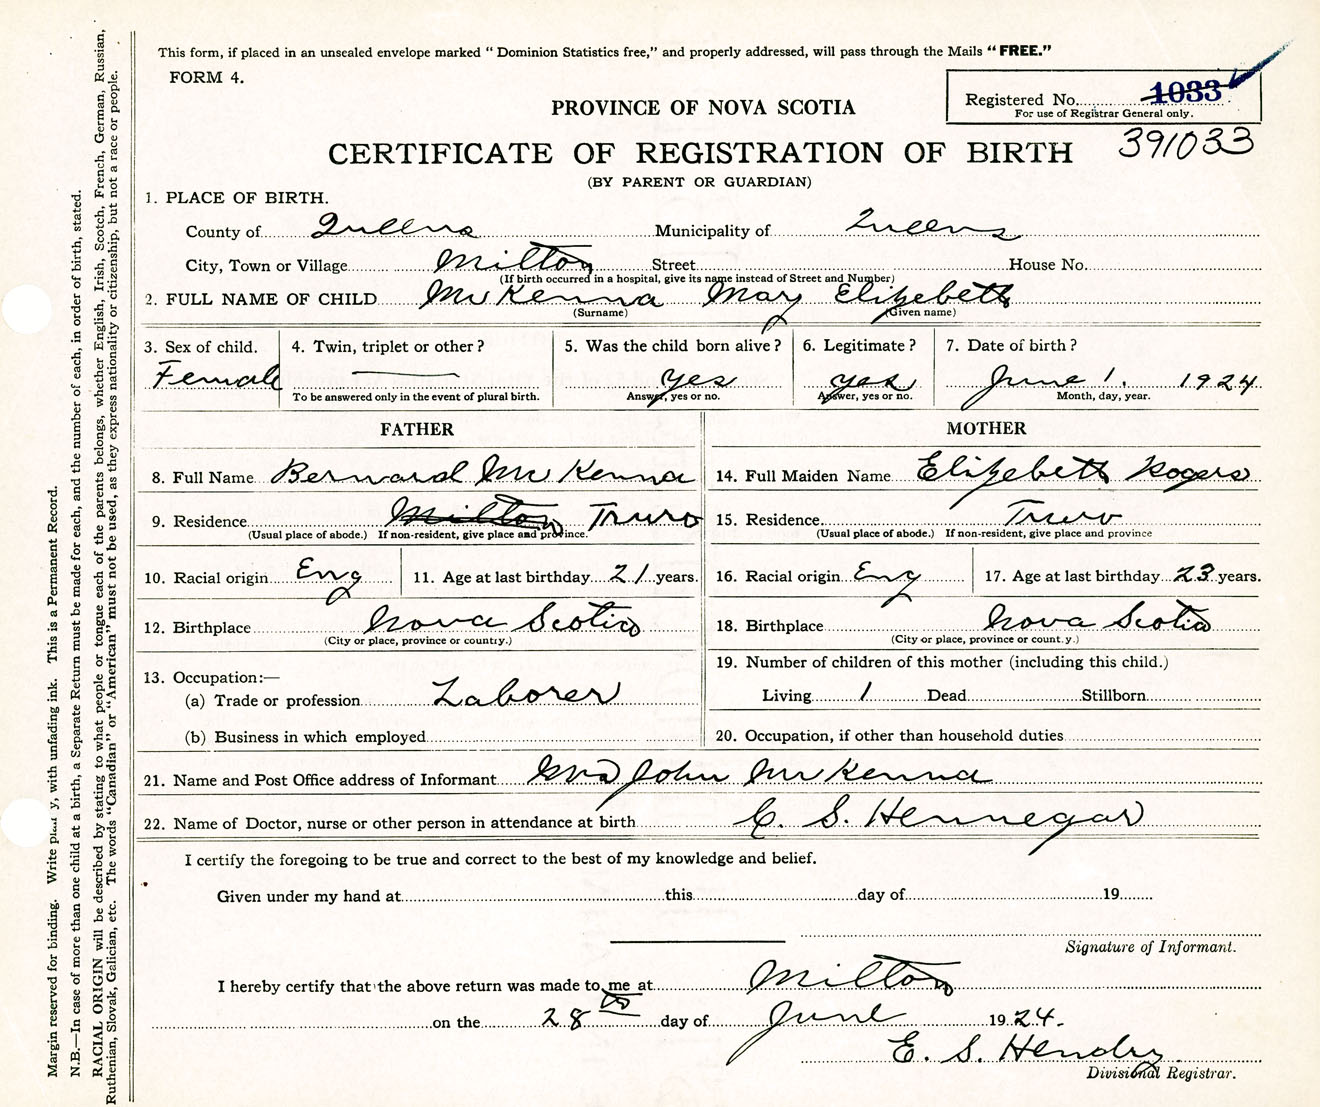 This form, if placed in an unsealed envelope marked " Dominion Statistics free," and properly addressed, will pass through the Mails " FREE."
FORM 4.
Registered No. 1033
For use of Registrar General only.
391033
PROVINCE OF NOVA SCOTIA
CERTIFICATE OF REGISTRATION OF BIRTH
(BY PARENT OR GUARDIAN)
1. PLACE OF BIRTH.
County of Queens Municipality of Queens
City, Town or Village Milton Street House No.
(If birth occurred in a hospital, give its name instead of Street and Number)
2. FULL NAME OF CHILD McKenna Mary Elizebeth
(Surname) (Given name)
3. Sex of child. 4. Twin, triplet or other ? 5. Was the child born alive ? 6. Legitimate ? 7. Date of birth ?
Female — yes yes June 1. 1924
To be answered only in the event of plural birth. Answer, yes or no. Answer, yes or no. Month, day, year.
FATHER MOTHER
8. Full Name Bernard McKenna 14. Full Maiden Name Elizebeth Rogers
9. Residence Milton Truro 15. Residence Truro
(Usual place of abode.) If non-resident, give place and province. (Usual place of abode.) If non-resident, give place and province
10. Racial origin Eng 11. Age at last birthday 21 years. 16. Racial origin Eng 17. Age at last birthday 23 years.
12. Birthplace Nova Scotia 18. Birthplace Nova Scotia
(City or place, province or country.) (City or place, province or count.y.)
13. Occupation:— 19. Number of children of this mother (including this child.)
(a) Trade or profession Laborer Living 1 Dead Stillborn
(b) Business in which employed 20. Occupation, if other than household duties
21. Name and Post Office address of Informant Mrs John McKenna
22. Name of Doctor, nurse or other person in attendance at birth C. S. Hennegar
I certify the foregoing to be true and correct to the best of my knowledge and belief.
Given under my hand at this day of 19
Signature of Informant.
I hereby certify that the above return was made to me at Milton
on the 28th day of June 1924.
E. S. Hendry.
Divisional Registrar.
Margin reserved for binding. Write plainly, with unfading ink. This is a Permanent Record.
N.B.—In case of more than one child at a birth, a Separate Return must be made for each, and the number of each, in order of birth, stated.
RACIAL ORIGIN will be described by stating to what people or tongue each of the parents belongs, whether English, Irish, Scotch, French, German, Russian,
Ruthenian, Slovak, Galician, etc. The words "Canadian" or "American" must not be used, as they express nationality or citizenship, but not a race or people.